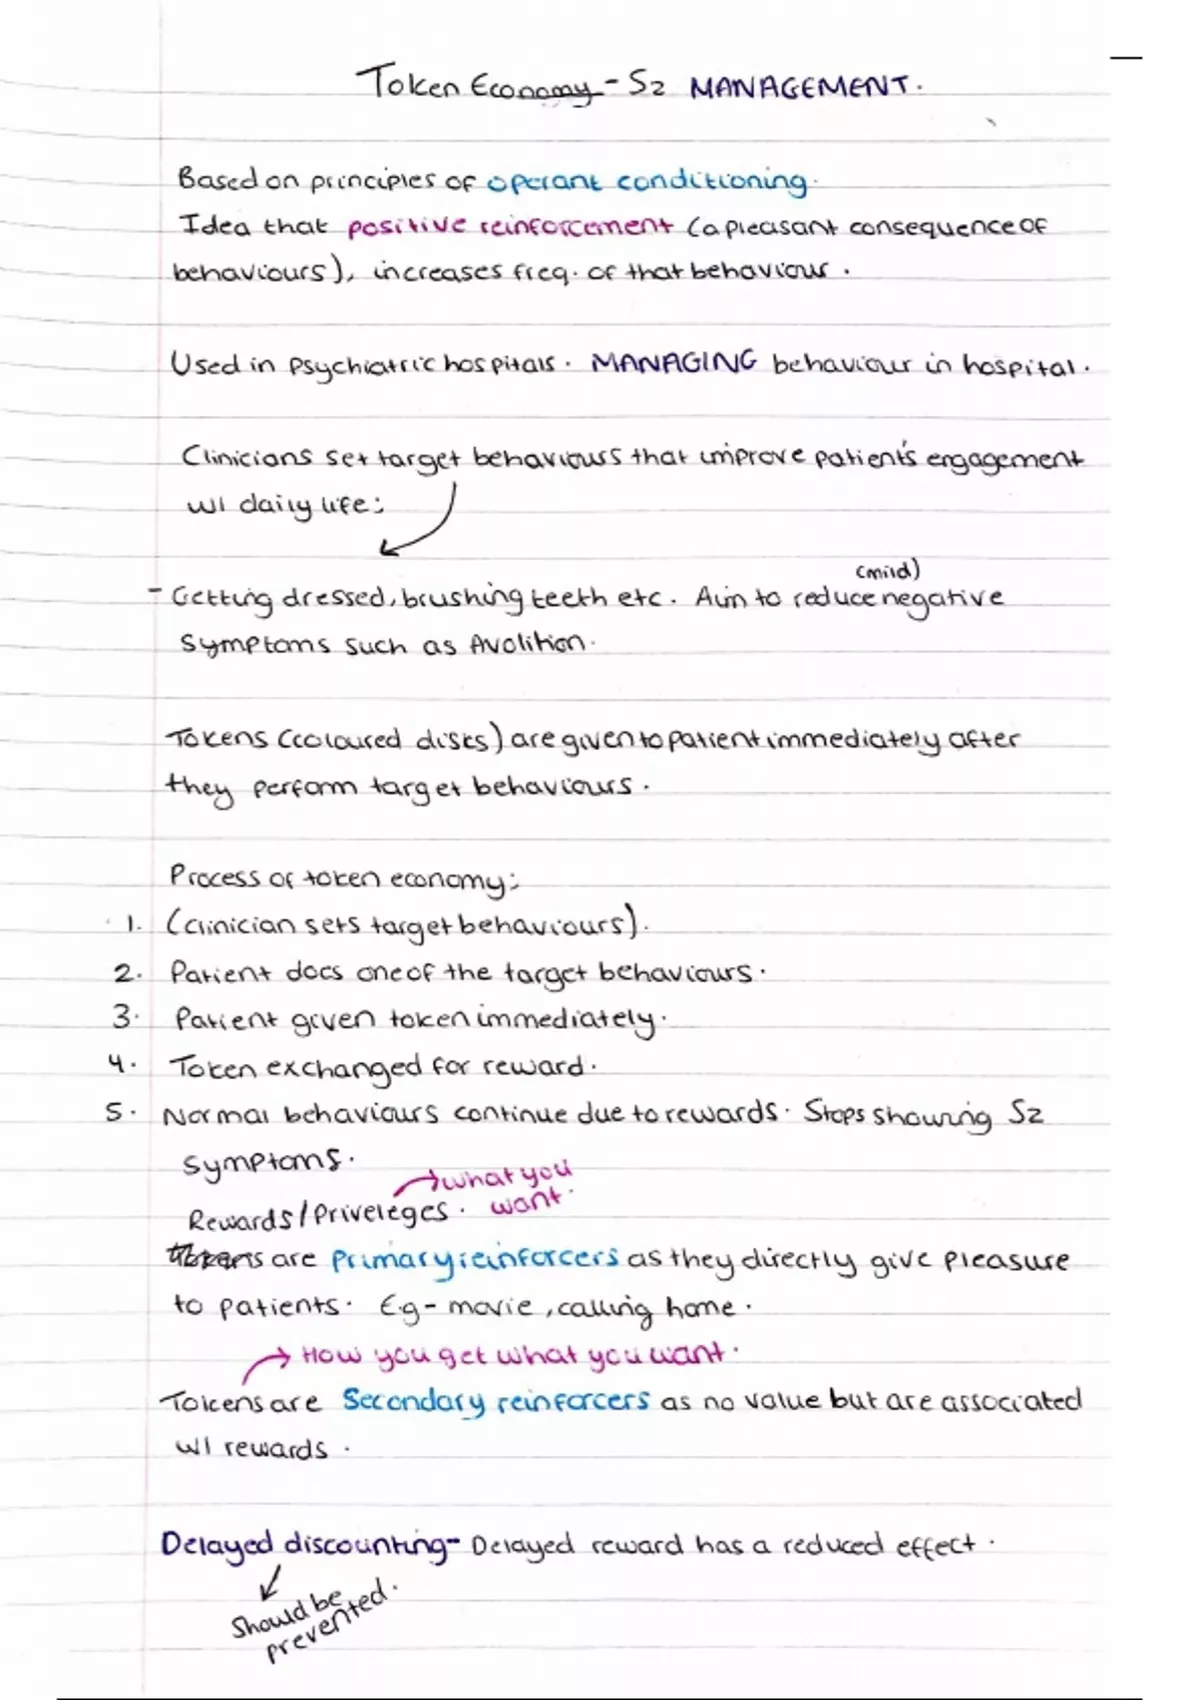 Token Economy - Sz MANAGEMENT.
Based on principles of operant conditioning.
Idea that positive reinforcement (a pleasant consequence of
behaviours), increases freq. of that behaviour.
Used in psychiatric hospitals. MANAGING behaviour in hospital.
Clinicians set target behaviours that improve patient's engagement
w/ daily life:
(mild)
- Getting dressed, brushing teeth etc. Aim to reduce negative
symptoms such as Avolition.
Tokens (coloured discs) are given to patient immediately after
they perform target behaviours.
Process of token economy:
1. (Clinician sets target behaviours).
2. Patient does one of the target behaviours.
3. Patient given token immediately.
4. Token exchanged for reward.
5. Normal behaviours continue due to rewards. Stops showing Sz
symptoms.
→ what you
want.
Rewards/Priveleges.
are primary reinforcers as they directly give pleasure
to patients. E.g - movie, calling home.
→ How you get what you want.
Tokens are Secondary reinforcers as no value but are associated
w/ rewards.
Delayed discounting - Delayed reward has a reduced effect.
Should be
prevented.